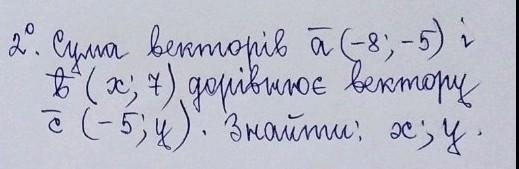 2⁰. Сума векторів a̅ (-8; -5) і
b̅ (x; 7) дорівнює вектору
c̅ (-5; y). Знайти: x; y.